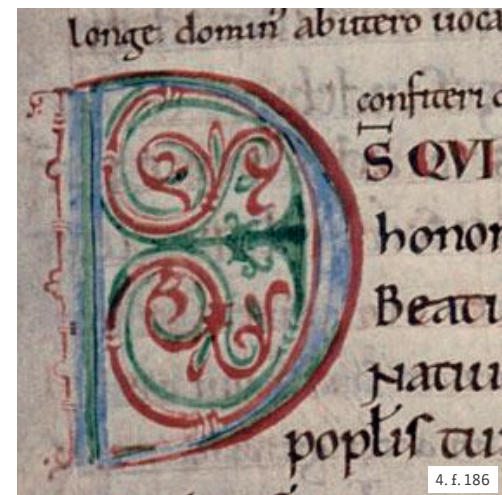 longe domin᷒ abutero uoca
confiteri c
D S̅ QVI
honor
Beatu
Natiu
popl̅is tu
4. f. 186